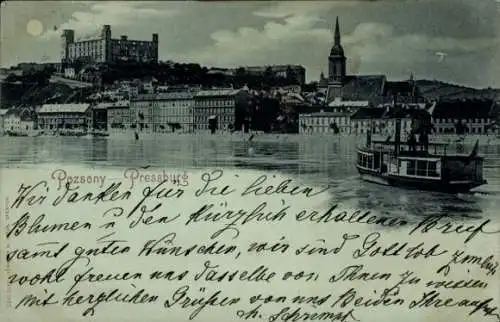 Pozsony Pressburg
Wir danken für die lieben
Blumen u den kürzlich erhaltenen Brief
samt guten Wünschen, wir sind Gott lob
wohl freuen uns dasselbe von Ihnen zu wissen
mit herzlichen Grüßen von uns Beiden Ihre
Schrempf